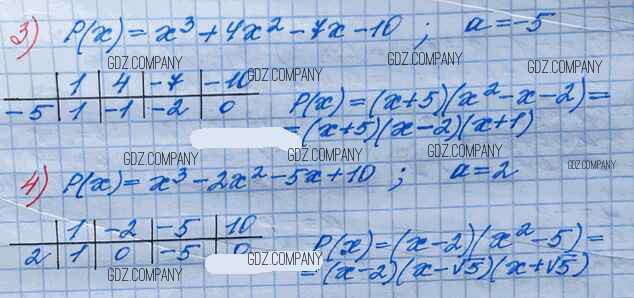 3) P(x) = x³ + 4x² - 7x - 10 ; a = -5
GDZ.COMPANY GDZ.COMPANY GDZ.COMPANY GDZ.COMPANY
1 4 -7 -10
-5 1 -1 -2 0
P(x) = (x+5)(x² - x - 2) =
= (x+5)(x-2)(x+1)
GDZ.COMPANY GDZ.COMPANY GDZ.COMPANY GDZ.COMPANY
4) P(x) = x³ - 2x² - 5x + 10 ; a = 2
1 -2 -5 10
2 1 0 -5 0
P(x) = (x-2)(x² - 5) =
= (x-2)(x-√5)(x+√5)
GDZ.COMPANY GDZ.COMPANY